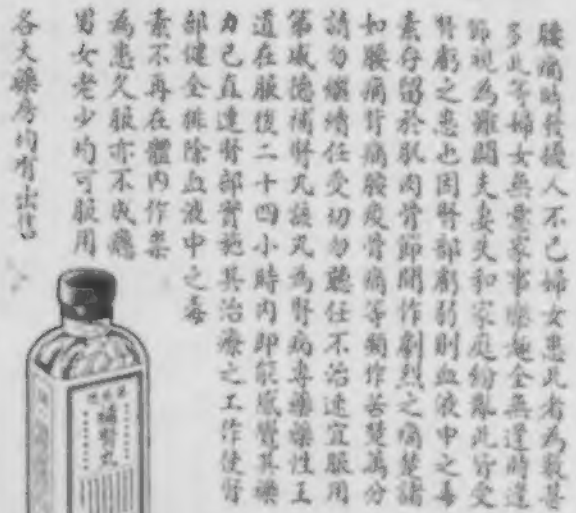 腰痛時發擾人不已婦女患此者為數甚
多此等婦女無意家事樂趣全無逢時逢
節視為難關夫妻失和家庭紛亂此皆受
腎虧之患也因腎部虧弱則血液中之毒
素存留於肌肉骨節間作劇烈之痛楚諸
如腰痛背痛腰痠骨痛等類作苦楚萬分
請勿懶惰任受切勿聽任不治速宜服用
第威德補腎丸該丸為腎病專藥藥性王
道在服後二十四小時內即能感覺其藥
力已直達腎部實施其治療之工作使腎
部健全排除血液中之毒
素不再在體內作祟
為患久服亦不成癮
男女老少均可服用
各大藥房均有出售
補腎丸